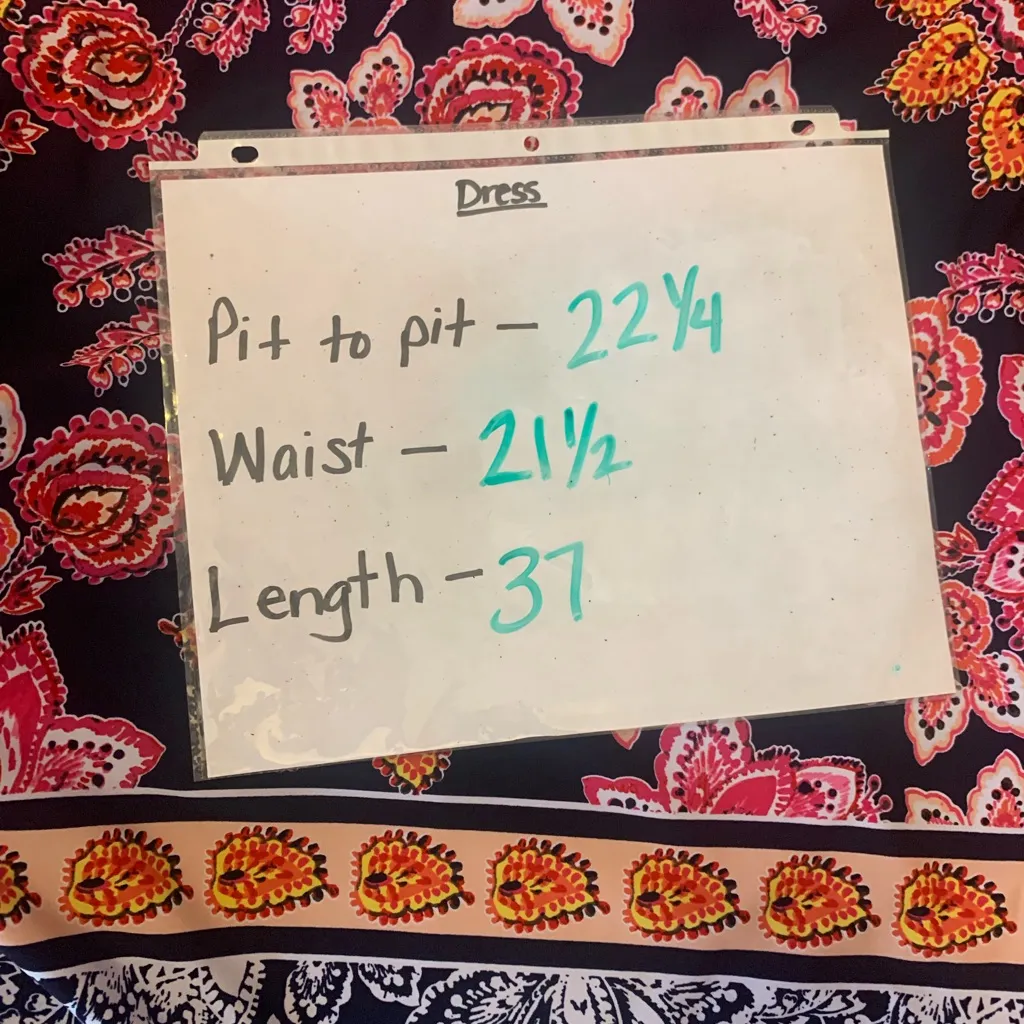 Dress
Pit to pit – 22 1/4
Waist – 21 1/2
Length – 37